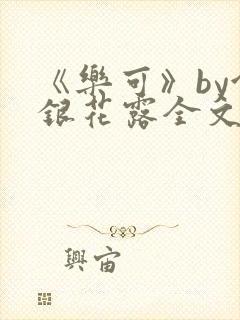 《樂可》by
銀花露全文
興宙